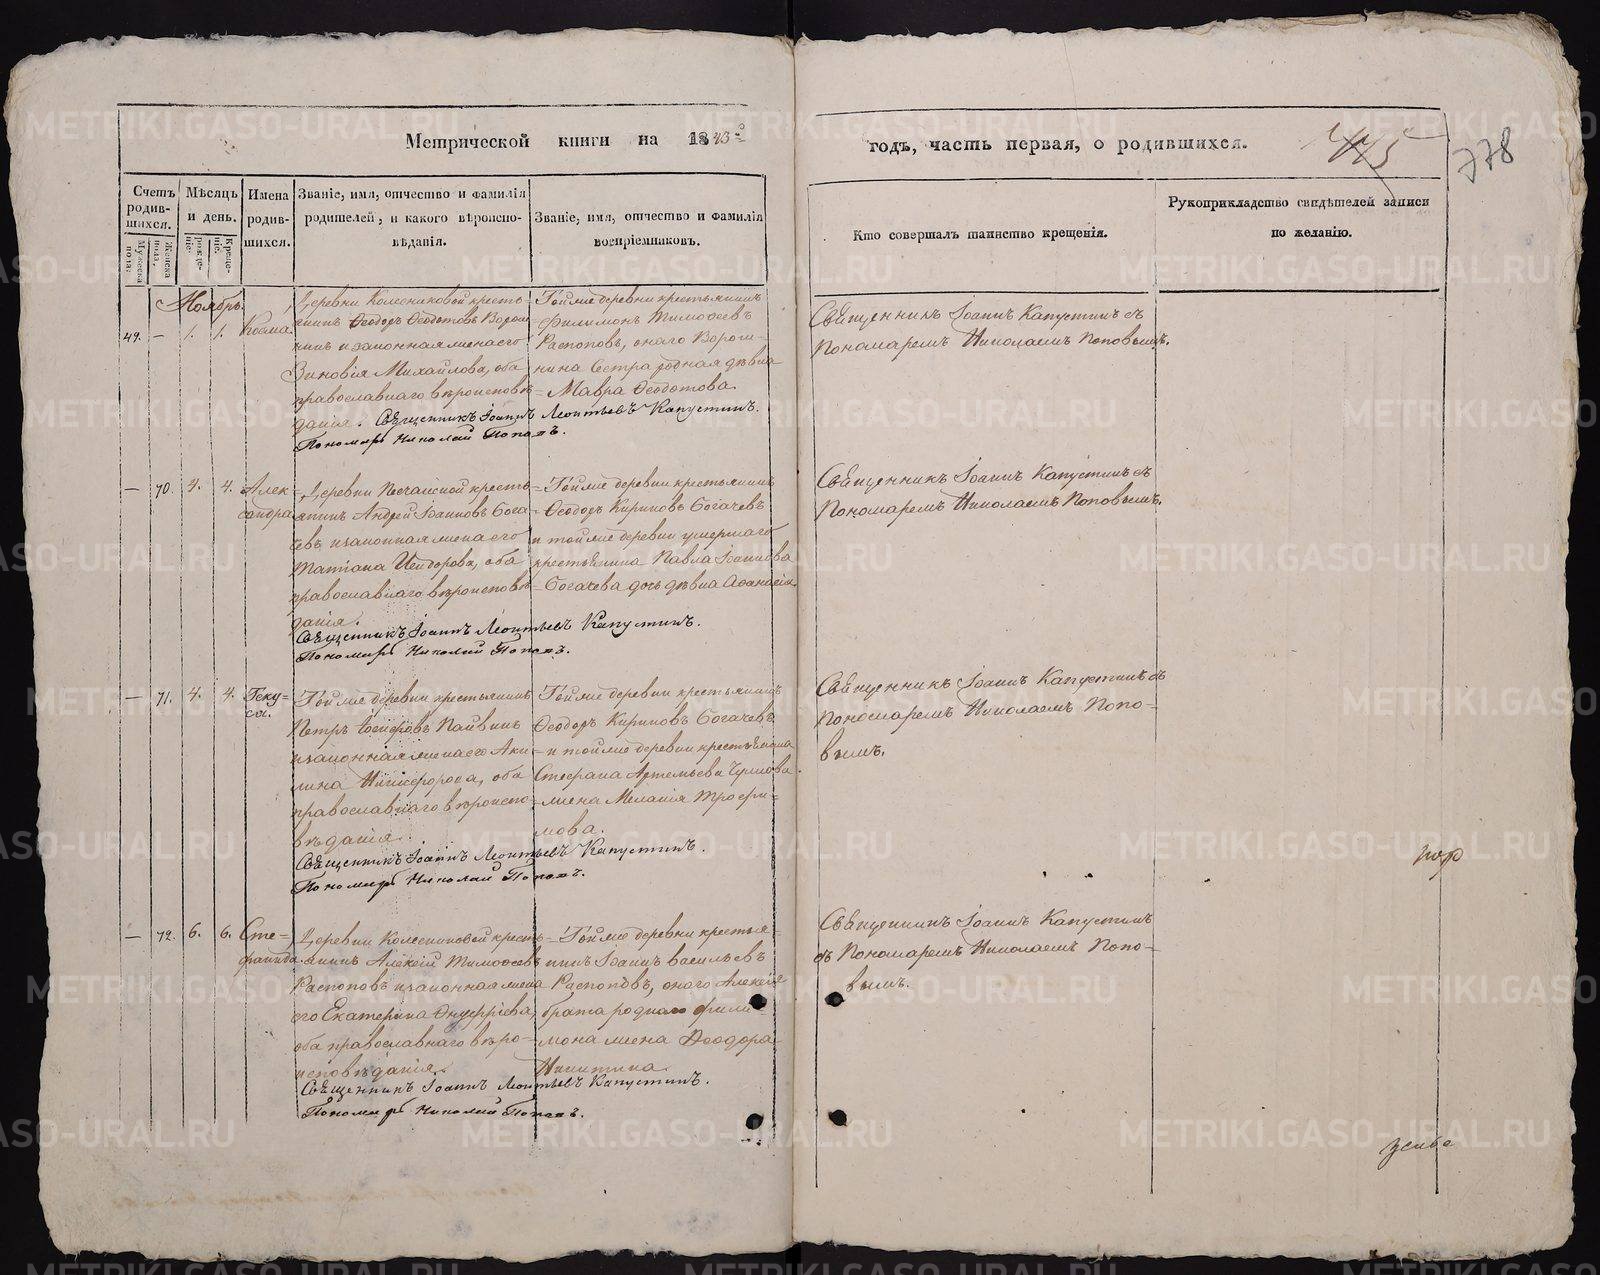 Метрической книги на 1843 г
годъ, часть первая, о родившихся.
445
778
Счетъ родив-шихся.
Мужеска пола.
Женска пола.
Мѣсяцъ и день.
рожде-нія.
Креще-нія.
Имена родив-шихся.
Званіе, имя, отчество и фамилія
родителей, и какого вѣроиспо-
вѣданія.
Званіе, имя, отчество и фамилія
воспріемниковъ.
Кто совершалъ таинство крещенія.
Рукоприкладство свидѣтелей записи
по желанію.
Ноябрь.
49. — 1. 1. Косма.
Деревни Колесниковой кресть-
янинъ Ѳеодоръ Ѳеодотовъ Ворош
нинъ и законная жена его
Зиновія Михайлова, оба
православнаго вѣроисповѣ-
данія. Священникъ Іоаннъ Леонтьевъ Капустинъ.
Пономарь Николай Поповъ.
Тойже деревни крестьянинъ
Филимонъ Тимоѳеевъ
Распоповъ, онаго Ворош-
нина Сестра родная дѣвка
Мавра Ѳеодотова.
Священникъ Іоаннъ Капустинъ съ
Пономаремъ Николаемъ Поповымъ.
— 70. 4. 4. Алек-
сандра
Деревни Песчанской кресть-
янинъ Андрей Іоанновъ Бога-
чевъ и законная жена его
Татіана Исидорова, оба
православнаго вѣроисповѣ-
данія.
Священникъ Іоаннъ Леонтьевъ Капустинъ.
Пономарь Николай Поповъ.
Тойже деревни крестьянинъ
Ѳеодоръ Кириковъ Богачевъ
и тойже деревни умершаго
крестьянина Павла Іоаннова
Богачева дочь дѣвка Аѳанасія
Священникъ Іоаннъ Капустинъ съ
Пономаремъ Николаемъ Поповымъ.
— 71. 4. 4. Геку-
са.
Тойже деревни крестьянинъ
Петръ Іосифовъ Пайвинъ
и законная жена его Аки-
лина Никифорова, оба
православнаго вѣроиспо-
вѣданія.
Священникъ Іоаннъ Леонтьевъ Капустинъ.
Пономарь Николай Поповъ.
Тойже деревни крестьянинъ
Ѳеодоръ Кириковъ Богачевъ
и тойже деревни крестьянина
Стефана Артемьева
жена Меланія Трофи-
мова.
Священникъ Іоаннъ Капустинъ съ
Пономаремъ Николаемъ Попо-
вымъ.
— 72. 6. 6. Сте-
фанида
Деревни Колесниковой кресть-
янинъ Алексій Тимоѳеевъ
Распоповъ и законная жена
его Екатерина Онуфріева,
оба православнаго вѣро-
исповѣданія.
Священникъ Іоаннъ Леонтьевъ Капустинъ.
Пономарь Николай Поповъ.
Тойже деревни крестья-
нинъ Іоаннъ Васильевъ
Распоповъ, онаго Алексія
брата роднаго Фили-
мона жена Ѳеодора
Никитина.
Священникъ Іоаннъ Капустинъ
съ Пономаремъ Николаемъ Попо-
вымъ.